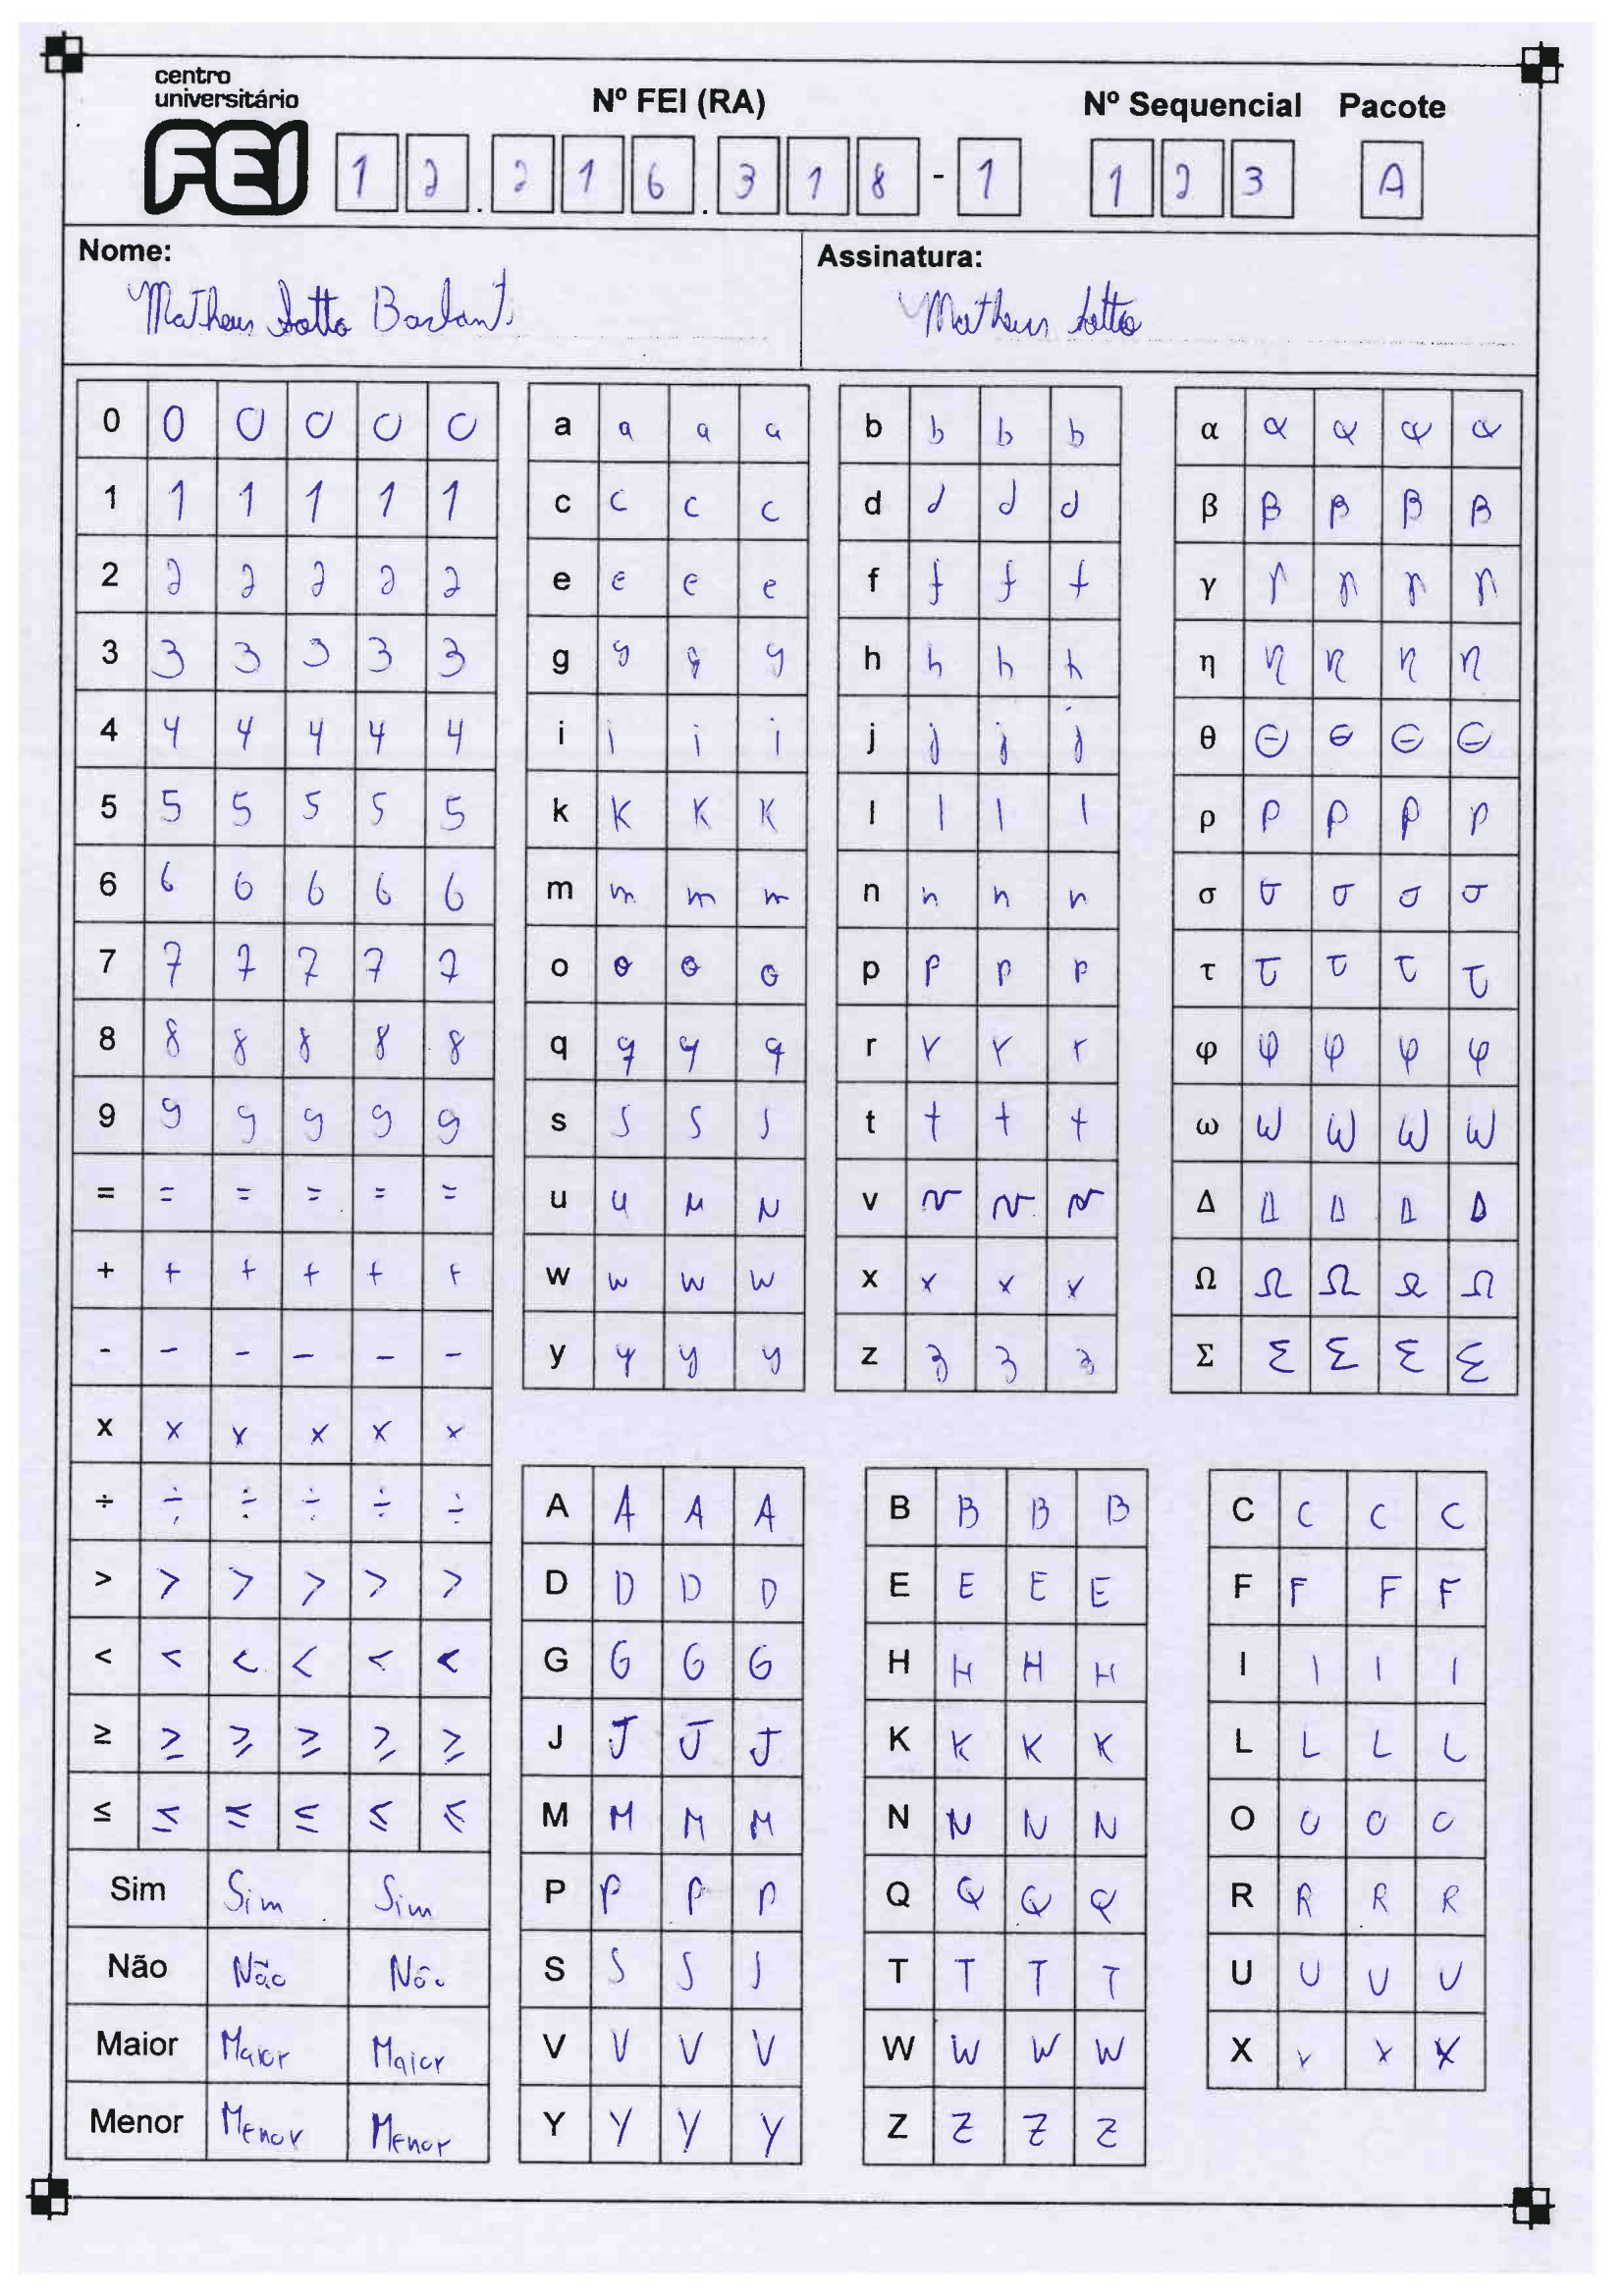 centro
universitário
FEI
Nº FEI (RA)
Nº Sequencial Pacote
1 2 . 2 1 6 . 3 1 8 - 1
1 2 3
A
Nome:
Matheus Sotto
Assinatura:
Matheus Sotto
0 0 0 0 0 0
1 1 1 1 1 1
2 2 2 2 2 2
3 3 3 3 3 3
4 4 4 4 4 4
5 5 5 5 5 5
6 6 6 6 6 6
7 7 7 7 7 7
8 8 8 8 8 8
9 9 9 9 9 9
= = = = = =
+ + + + + +
- - - - - -
x x x x x x
÷ ÷ ÷ ÷ ÷ ÷
> > > > > >
< < < < < <
≥ ≥ ≥ ≥ ≥ ≥
≤ ≤ ≤ ≤ ≤ ≤
Sim Sim Sim
Não Não Não
Maior Maior Maior
Menor Menor Menor
a a a a
c c c c
e e e e
g g g g
i i i i
k k k k
m m m m
o o o o
q q q q
s s s s
u u u u
w w w w
y y y y
b b b b
d d d d
f f f f
h h h h
j j j j
l l l l
n n n n
p p p p
r r r r
t t t t
v v v v
x x x x
z z z z
α α α α α
β β β β β
γ γ γ γ γ
η η η η η
θ θ θ θ θ
ρ ρ ρ ρ ρ
σ σ σ σ σ
τ τ τ τ τ
φ φ φ φ φ
ω ω ω ω ω
Δ Δ Δ Δ Δ
Ω Ω Ω Ω Ω
Σ Σ Σ Σ Σ
A A A A
D D D D
G G G G
J J J J
M M M M
P P P P
S S S S
V V V V
Y Y Y Y
B B B B
E E E E
H H H H
K K K K
N N N N
Q Q Q Q
T T T T
W W W W
Z Z Z Z
C C C C
F F F F
I I I I
L L L L
O O O O
R R R R
U U U U
X X X X